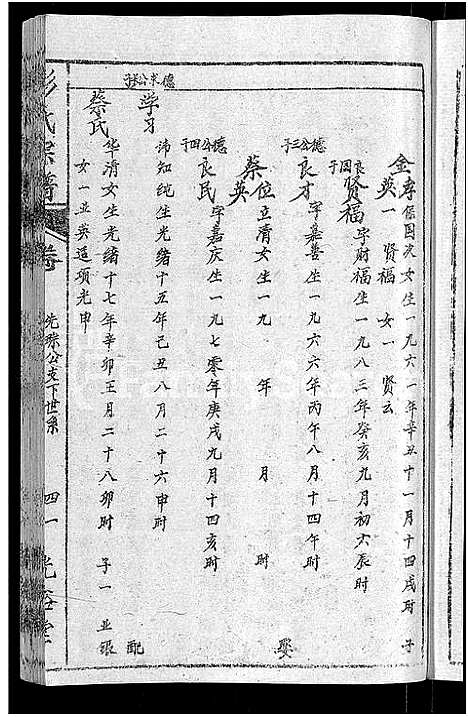 金英 李保国次女生一九六一年辛丑十一月十四戌时 子
一 贤福 女一 贤云
良国子 贤福 字财福生一九八三年癸亥九月初六辰时
德公三子 良才 字嘉善生一九六六年丙午八月十四午时 娶
蔡英 位立清女生一九 年 月 时
德公四子 良民 字嘉庆生一九七零年庚戌九月十四亥时
德宋公长子 学习 沛知纯生光绪十五年己丑八月二十六申时 配
蔡氏 华清女生光绪十七年辛卯五月二十八卯时 子一 亚振
女一亚英适项光申
彭氏宗谱 卷 先琮公支下世系 四一 光裕堂